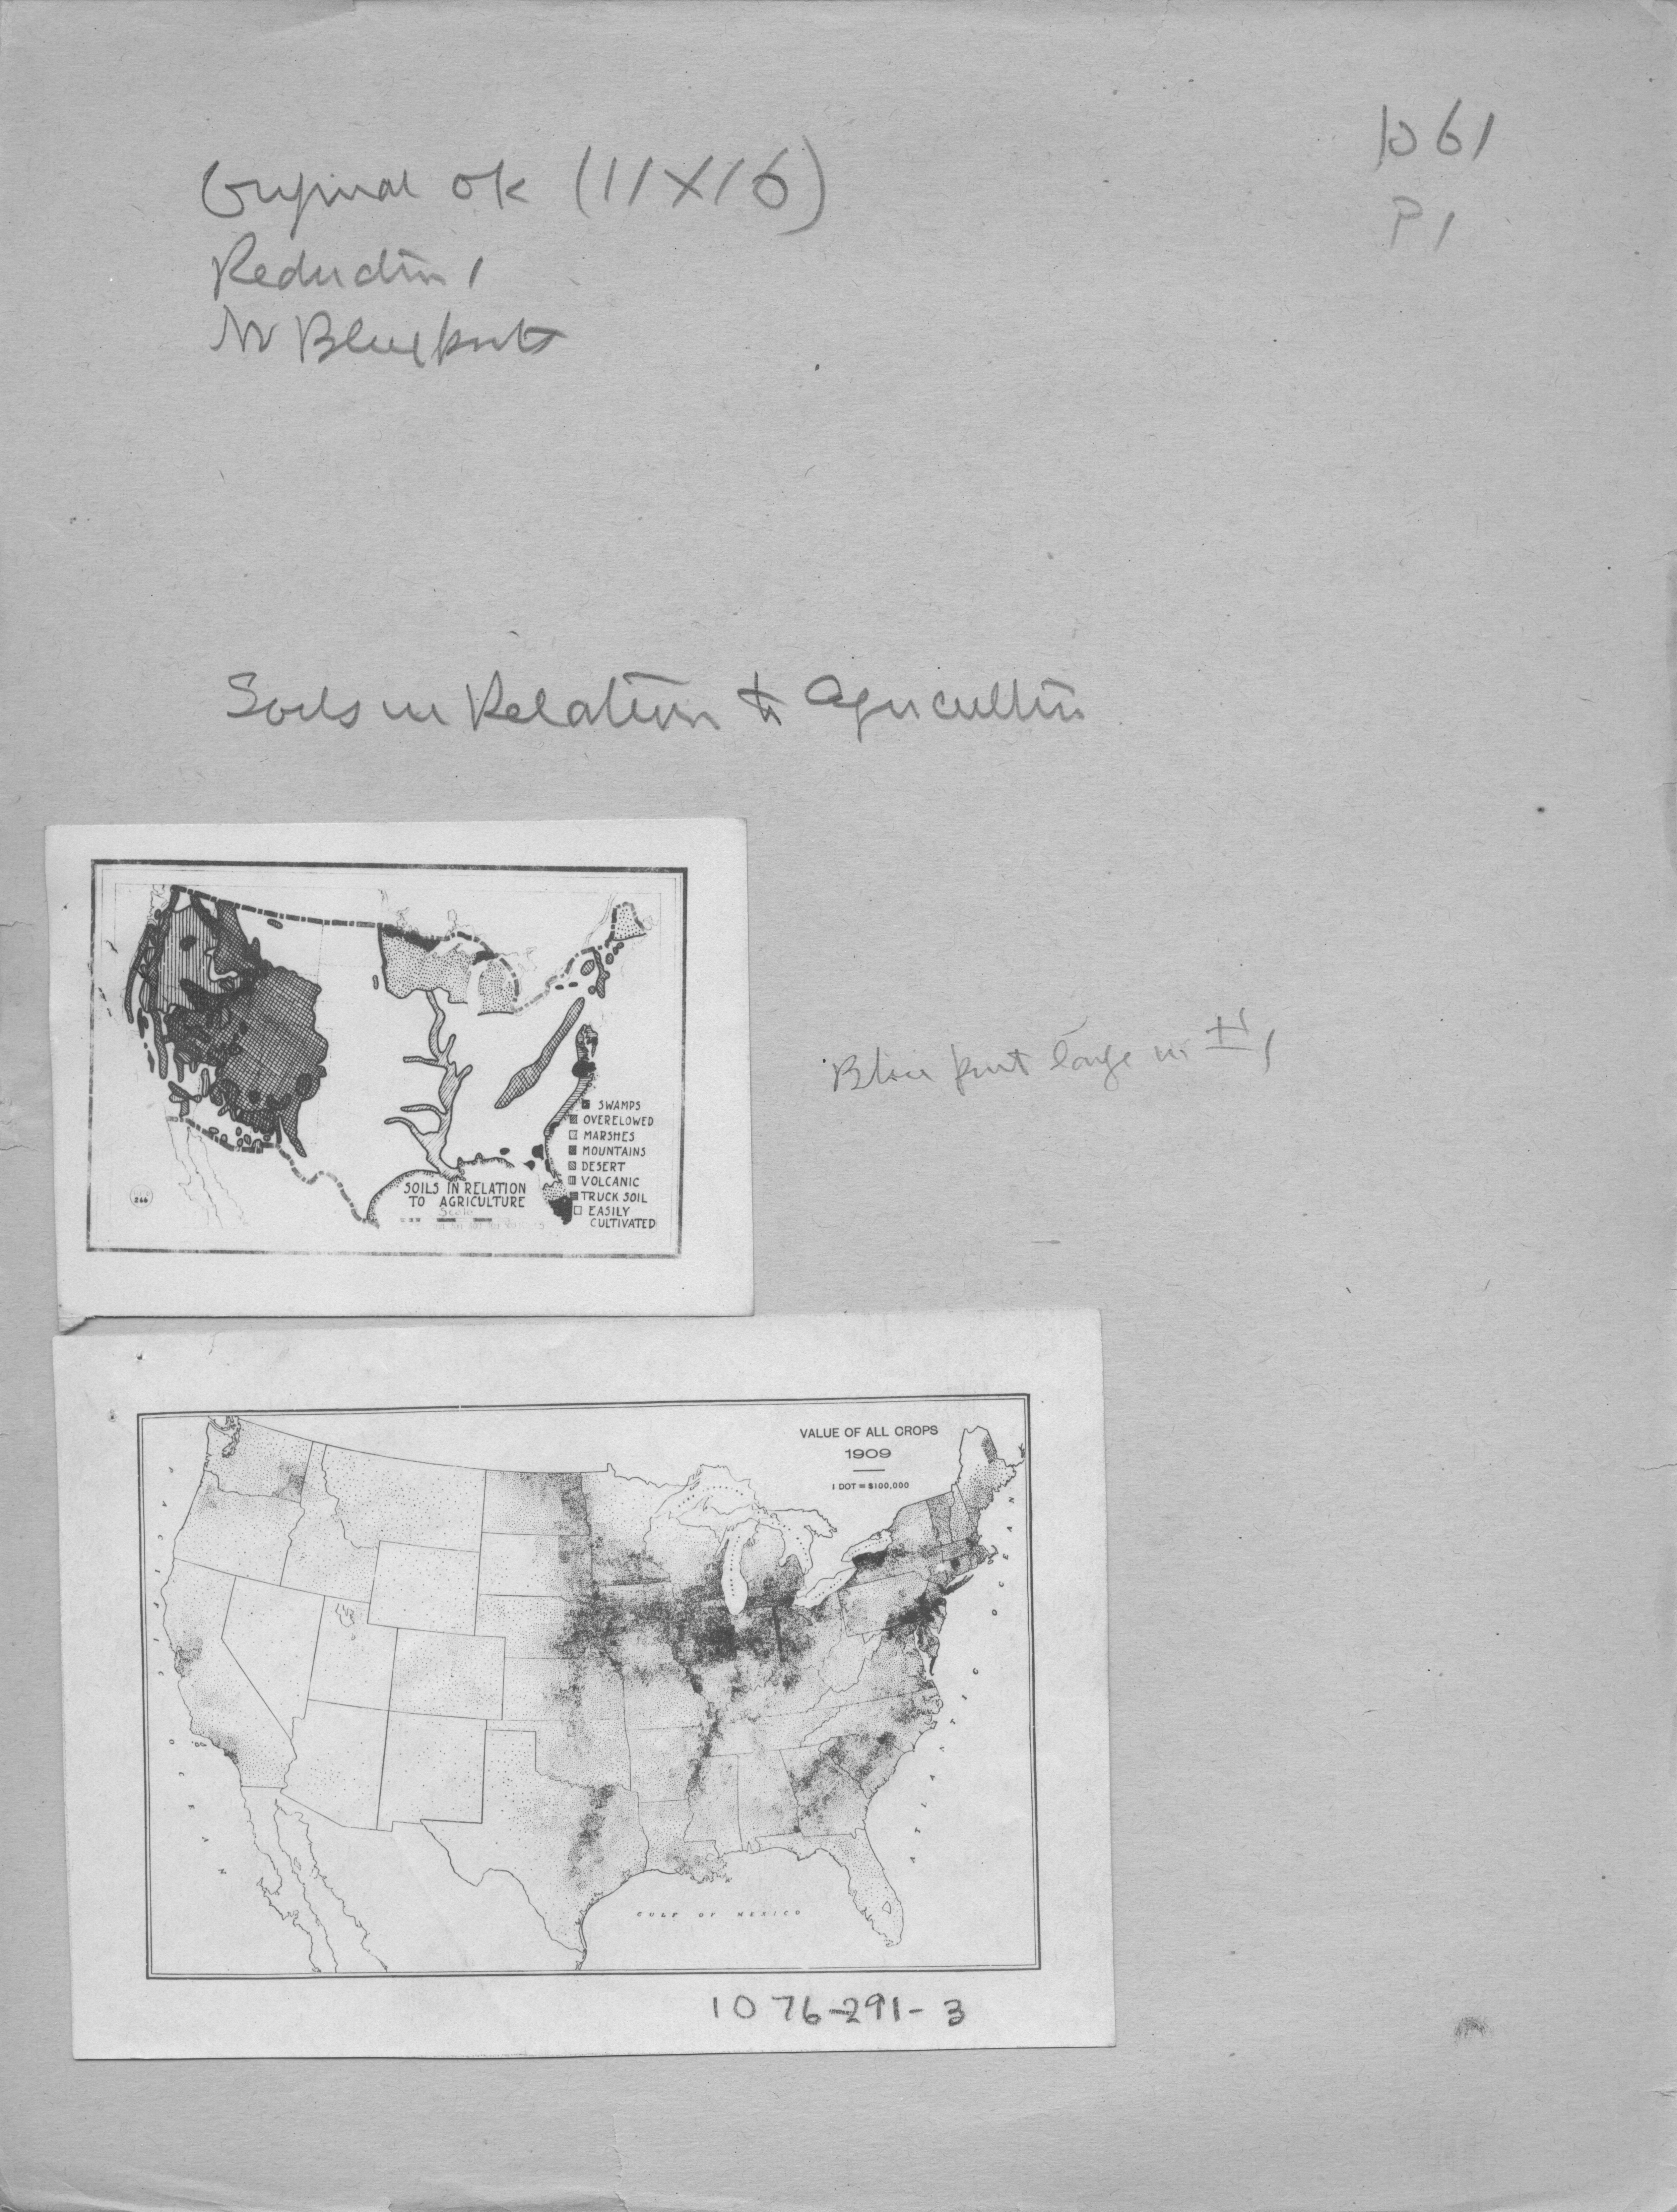 1061
P1
Original OK (11X16)
Reduction 1
No Blueprints
Soils in Relation to Agriculture
SWAMPS
OVERELOWED
MARSHES
MOUNTAINS
DESERT
VOLCANIC
TRUCK SOIL
EASILY
CULTIVATED
SOILS IN RELATION
TO AGRICULTURE
Scale
266
Blue print large
VALUE OF ALL CROPS
1909
1 DOT = $100,000
GULF OF MEXICO
1076-291-3